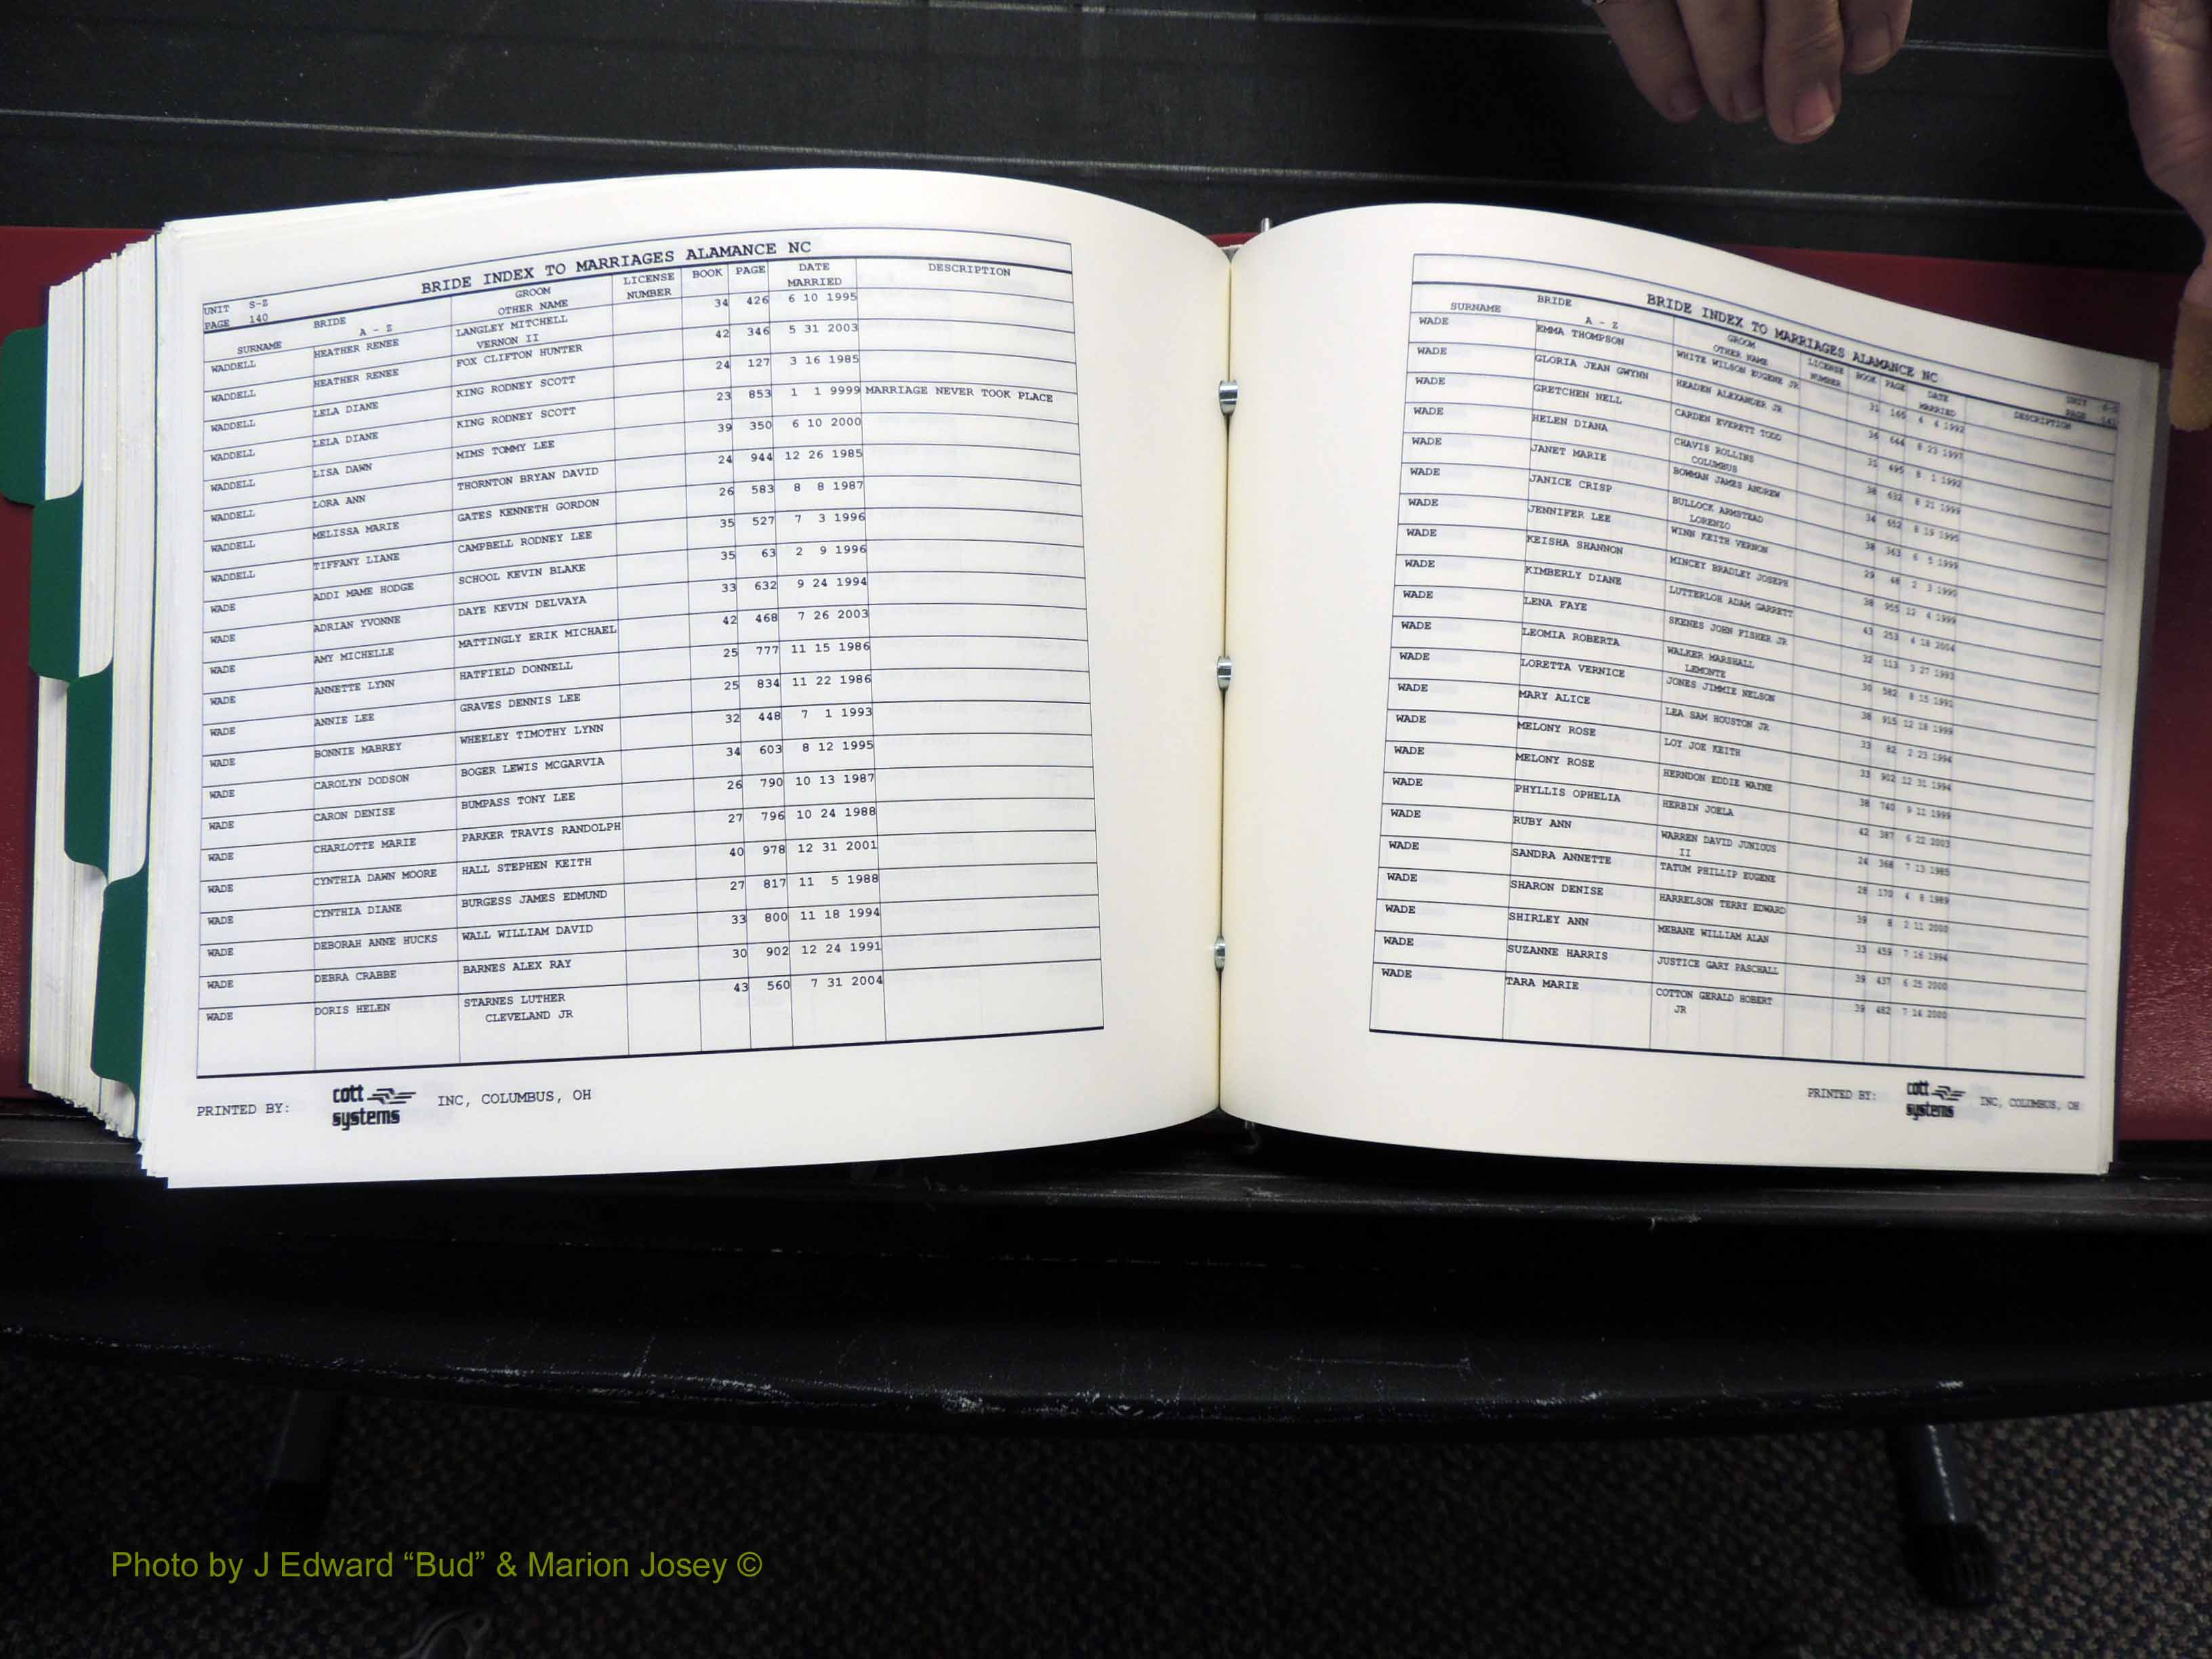 BRIDE INDEX TO MARRIAGES ALAMANCE NC
UNIT S-Z
PAGE 140
SURNAME BRIDE A - Z GROOM OTHER NAME LICENSE NUMBER BOOK PAGE DATE MARRIED DESCRIPTION
WADDELL HEATHER RENEE LANGLEY MITCHELL VERNON II 34 426 6 10 1995
WADDELL HEATHER RENEE FOX CLIFTON HUNTER 42 346 5 31 2003
WADDELL LELA DIANE KING RODNEY SCOTT 24 127 3 16 1985
WADDELL LELA DIANE KING RODNEY SCOTT 23 853 1 1 9999 MARRIAGE NEVER TOOK PLACE
WADDELL LISA DAWN MIMS TOMMY LEE 39 350 6 10 2000
WADDELL LORA ANN THORNTON BRYAN DAVID 24 944 12 26 1985
WADDELL MELISSA MARIE GATES KENNETH GORDON 26 583 8 8 1987
WADDELL TIFFANY LIANE CAMPBELL RODNEY LEE 35 527 7 3 1996
WADE ADDI MAME HODGE SCHOOL KEVIN BLAKE 35 63 2 9 1996
WADE ADRIAN YVONNE DAYE KEVIN DELVAYA 33 632 9 24 1994
WADE AMY MICHELLE MATTINGLY ERIK MICHAEL 42 468 7 26 2003
WADE ANNETTE LYNN HATFIELD DONNELL 25 777 11 15 1986
WADE ANNIE LEE GRAVES DENNIS LEE 25 834 11 22 1986
WADE BONNIE MABREY WHEELEY TIMOTHY LYNN 32 448 7 1 1993
WADE CAROLYN DODSON BOGER LEWIS MCGARVIA 34 603 8 12 1995
WADE CARON DENISE BUMPASS TONY LEE 26 790 10 13 1987
WADE CHARLOTTE MARIE PARKER TRAVIS RANDOLPH 27 796 10 24 1988
WADE CYNTHIA DAWN MOORE HALL STEPHEN KEITH 40 978 12 31 2001
WADE CYNTHIA DIANE BURGESS JAMES EDMUND 27 817 11 5 1988
WADE DEBORAH ANNE HUCKS WALL WILLIAM DAVID 33 800 11 18 1994
WADE DEBRA CRABBE BARNES ALEX RAY 30 902 12 24 1991
WADE DORIS HELEN STARNES LUTHER CLEVELAND JR 43 560 7 31 2004
PRINTED BY: cott systems INC, COLUMBUS, OH
BRIDE INDEX TO MARRIAGES ALAMANCE NC
UNIT
PAGE
SURNAME BRIDE A - Z GROOM OTHER NAME LICENSE NUMBER BOOK PAGE DATE MARRIED DESCRIPTION
WADE EMMA THOMPSON WHITE WILSON EUGENE JR 31 165 4 4 1992
WADE GLORIA JEAN GWYNN HEADEN ALEXANDER JR 36 644 8 23 1997
WADE GRETCHEN NELL CARDEN EVERETT TODD 31 495 8 1 1992
WADE HELEN DIANA CHAVIS ROLLINS COLUMBUS 38 632 8 21 1999
WADE JANET MARIE BOWMAN JAMES ANDREW 34 652 8 19 1995
WADE JANICE CRISP BULLOCK ARMSTEAD LORENZO 38 363 6 5 1999
WADE JENNIFER LEE WINN KEITH VERNON 29 48 2 3 1990
WADE KEISHA SHANNON MINCEY BRADLEY JOSEPH 38 955 12 4 1999
WADE KIMBERLY DIANE LUTTERLOH ADAM GARRETT 43 253 4 18 2004
WADE LENA FAYE SKENES JOHN FISHER JR 32 113 3 27 1993
WADE LEOMIA ROBERTA WALKER MARSHALL LEMONTE 30 582 8 15 1991
WADE LORETTA VERNICE JONES JIMMIE NELSON 38 915 12 18 1999
WADE MARY ALICE LEA SAM HOUSTON JR 33 82 2 23 1994
WADE MELONY ROSE LOY JOE KEITH 33 902 12 31 1994
WADE MELONY ROSE HERNDON EDDIE WAYNE 38 740 9 11 1999
WADE PHYLLIS OPHELIA HERBIN JOELA 42 387 6 22 2003
WADE RUBY ANN WARREN DAVID JUNIOUS II 24 368 7 13 1985
WADE SANDRA ANNETTE TATUM PHILLIP EUGENE 28 170 4 8 1989
WADE SHARON DENISE HARRELSON TERRY EDWARD 39 8 2 11 2000
WADE SHIRLEY ANN MEBANE WILLIAM ALAN 33 459 7 16 1994
WADE SUZANNE HARRIS JUSTICE GARY PASCHALL 39 437 6 25 2000
WADE TARA MARIE COTTON GERALD HOBERT JR 39 482 7 14 2000
PRINTED BY: cott systems INC, COLUMBUS, OH
Photo by J Edward “Bud” & Marion Josey ©